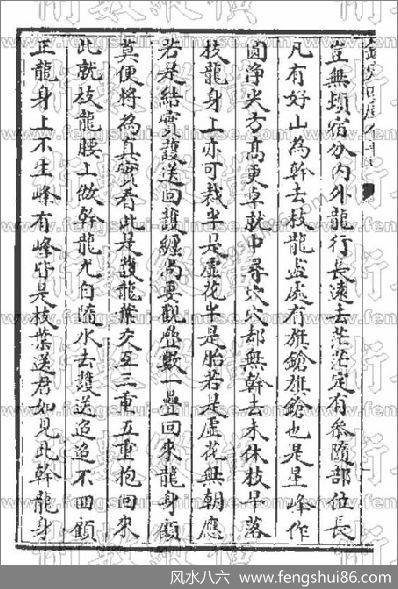 豈無頓宿分內外龍行長遠去茫茫定有參隨部伍長
凡有好山為幹去枝龍盡處有旗鎗旗鎗也是星峰作
圓淨尖方高更卓就中尋穴穴却無幹去未休枝早落
枝龍身上亦可裁半是虛花半是胎若是虛花無朝應
若是結實護送回護纏尚要觀疊數一疊回來龍身顧
莫便將為真實看此是護龍葉交互三重五重抱回來
此就枝龍腰上做幹龍尤自隨水去護送迢迢不回顧
正龍身上不生峰有峰皆是枝葉送君如見此幹龍身
风水八六 www.fengshui86.com